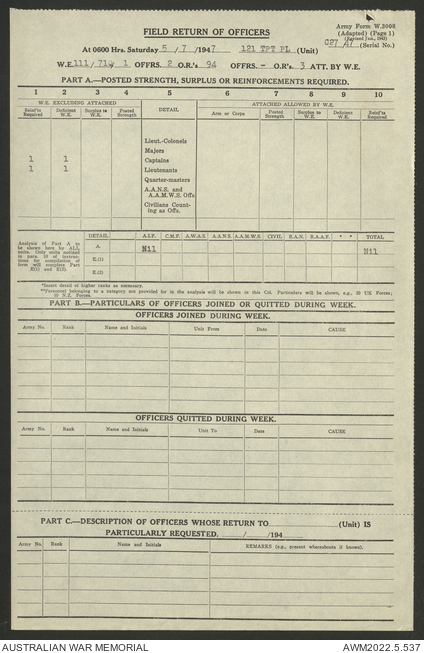 Army Form W.3008
(Adapted) (Page 1)
(Revised Jan., 1945)
(Serial No.)
FIELD RETURN OF OFFICERS
At 0600 Hrs. Saturday 5 / 7 /1947 121 TPT PL (Unit)
W.E. 1 OFFRS. 2 O.R's. 94 OFFRS. - O.R's. 3 ATT. BY W.E.
PART A.—POSTED STRENGTH, SURPLUS OR REINFORCEMENTS REQUIRED.
1 2 3 4 5 6 7 8 9 10
W.E. EXCLUDING ATTACHED DETAIL ATTACHED ALLOWED BY W.E.
Reinf'ts Required Deficient W.E. Surplus to W.E. Posted Strength Arm or Corps Posted Strength Surplus to W.E. Deficient W.E. Reinf'ts Required
Lieut.-Colonels
Majors
1 1 Captains
1 1 Lieutenants
Quarter-masters
A.A.N.S. and
A.A.M.W.S. Offs.
Civilians Count-
ing as Offs.
Analysis of Part A to be shown here by ALL units. Only units notified in para. 10 of instructions for compilation of form will complete Part E(1) and E(2).
DETAIL A.I.F. C.M.F. A.W.A.S. A.A.N.S. A.A.M.W.S. CIVIL R.A.N. R.A.A.F. * * TOTAL
A. Nil Nil
E.(1)
E.(2)
*Insert detail of higher ranks as necessary.
**Personnel belonging to a category not provided for in the analysis will be shown in this Col. Particulars will be shown, e.g., 20 UK Forces;
10 N.Z. Forces.
PART B.—PARTICULARS OF OFFICERS JOINED OR QUITTED DURING WEEK.
OFFICERS JOINED DURING WEEK.
Army No. Rank Name and Initials Unit From Date CAUSE
OFFICERS QUITTED DURING WEEK.
Army No. Rank Name and Initials Unit To Date CAUSE
PART C.—DESCRIPTION OF OFFICERS WHOSE RETURN TO (Unit) IS
PARTICULARLY REQUESTED. / /194
Army No. Rank Name and Initials REMARKS (e.g., present whereabouts if known).
AUSTRALIAN WAR MEMORIAL AWM2022.5.537